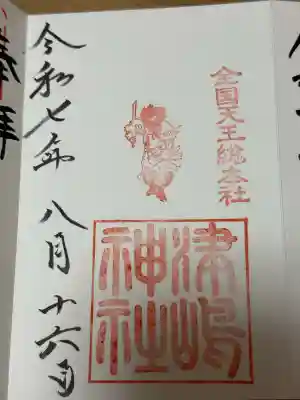 全国天王総本社
津島
神社
令和七年 八月 十六日
奉拝